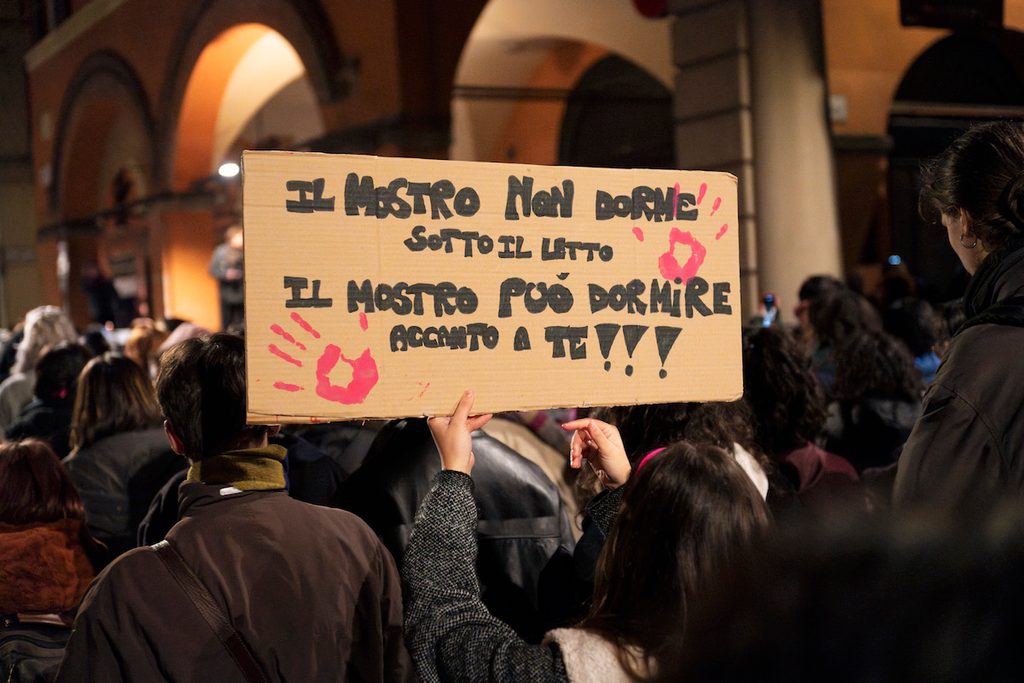 IL MOSTRO NON DORME
SOTTO IL LETTO
IL MOSTRO PUÓ DORMiRE
ACCANTO A TE!!!